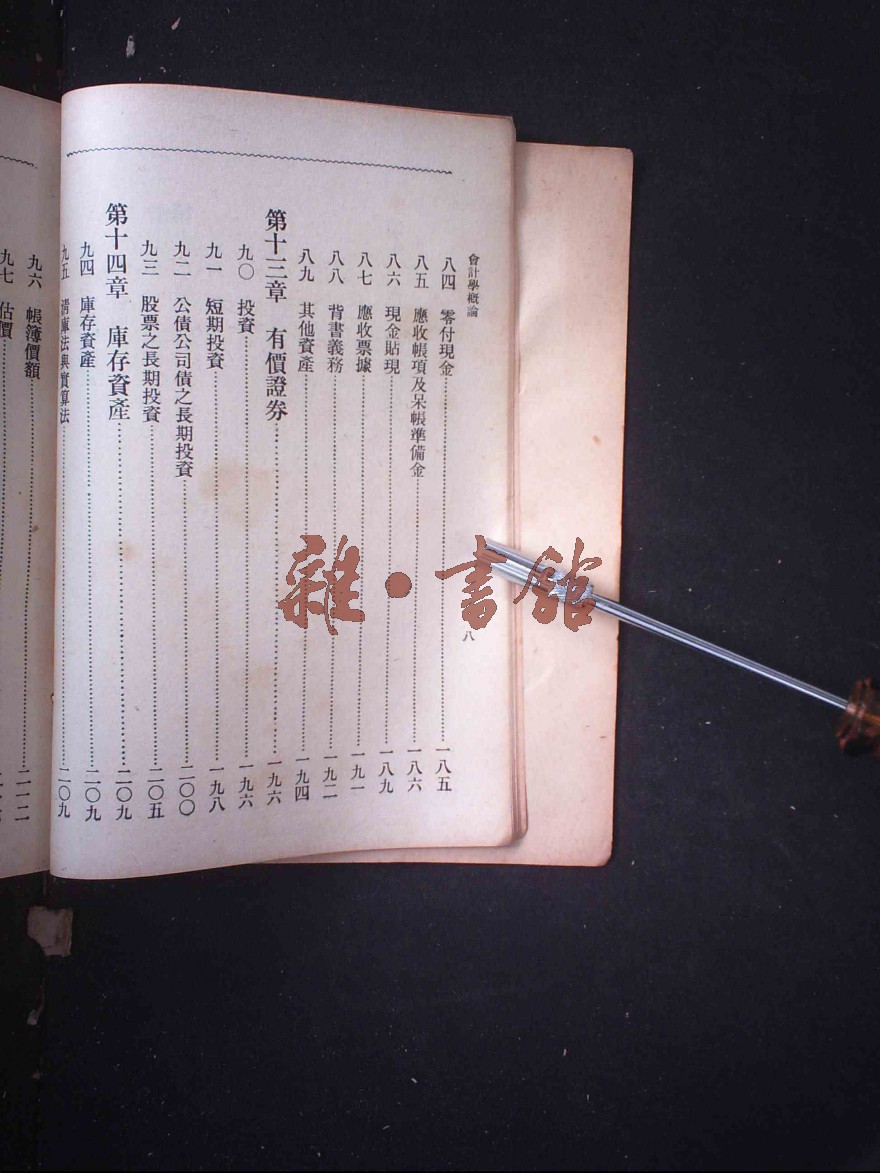 會計學概論
八四 零付現金 一八五
八五 應收帳項及呆帳準備金 一八六
八六 現金貼現 一八九
八七 應收票據 一九一
八八 背書義務 一九二
八九 其他資產 一九四
第十三章 有價證券 一九六
九〇 投資 一九六
九一 短期投資 一九八
九二 公債公司債之長期投資 二〇〇
九三 股票之長期投資 二〇五
第十四章 庫存資產 二〇九
九四 庫存資產 二〇九
九五 清庫法與實算法 二〇九
八
九六 帳簿價額 二一二
九七 估價
雜·書館